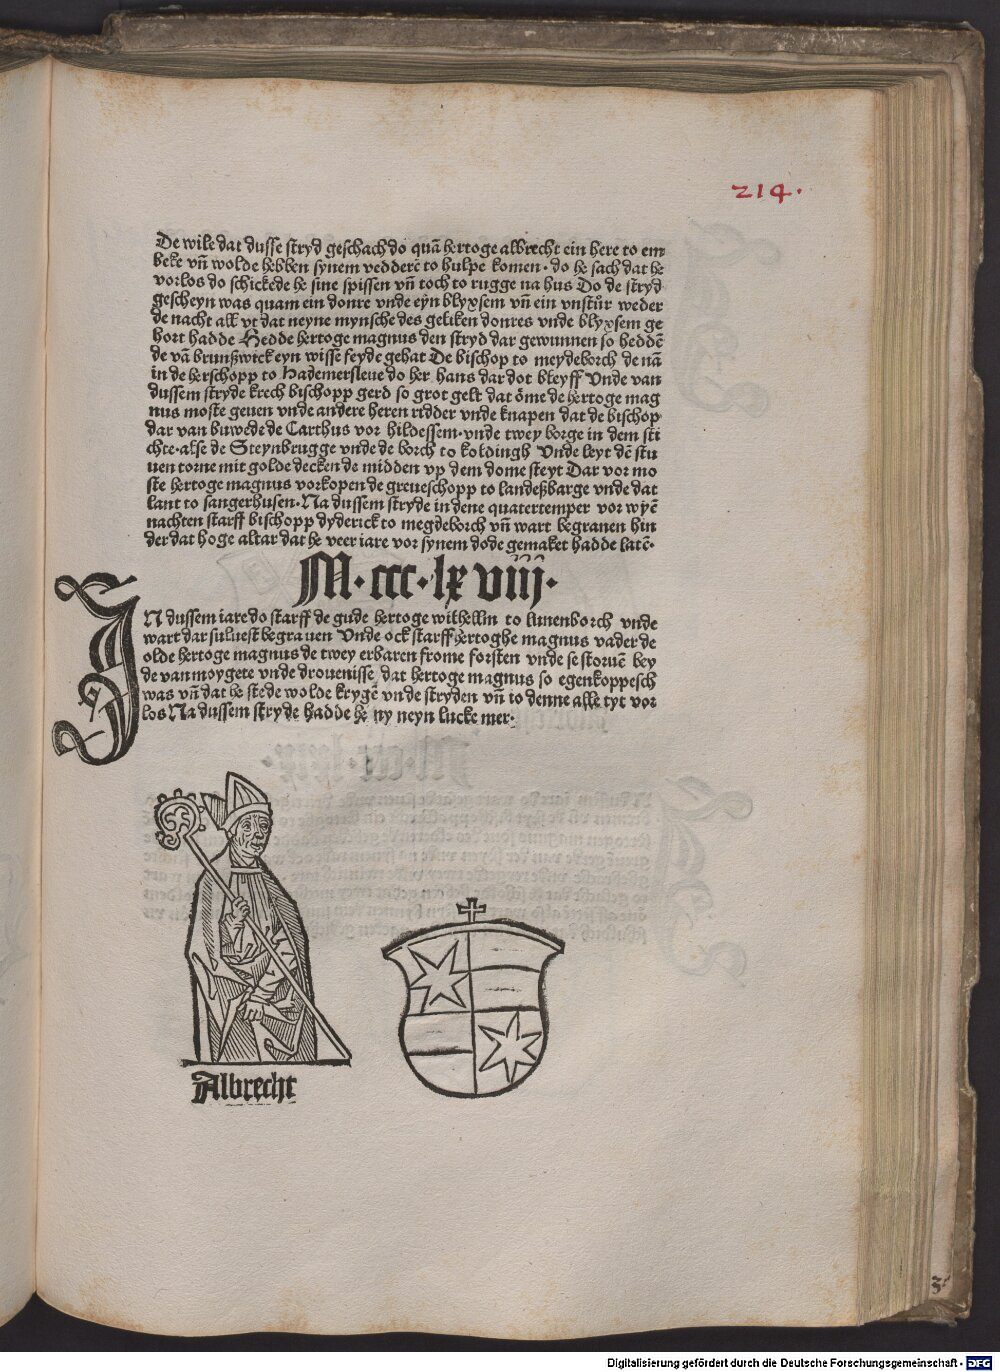 214.
De wile dat dusse stryd geschach do quā hertoge albrecht ein here to em
beke vn̄ wolde hebben synem vedderē to hulpe komen · do he sach dat he
vorlos do schickede he sine spissen vn̄ toch to rugge na hus Do de stryd
gescheyn was quam ein donre vnde eyn blyxsem vn̄ ein vnstůr weder
de nacht all vt dat neyne mynsche des geliken donres vnde blyxsem ge
hort hadde Hedde hertoge magnus den stryd dar gewunnen so heddē
de vā brunßwick eyn wisse feyde gehat De bischop to meydeborch de nā
in de herschopp to hademersleue do her hans dar dot bleyff Vnde van
dussem stryde krech bischopp gerd so grot gelt dat ōme de hertoge mag
nus moste geuen vnde andere heren ridder vnde knapen dat de bischop
dar van buwede de Carthus vor hildessem · vnde twey borge in dem sti
chte · alse de Steynbrugge vnde de borch to koldingh Vnde leyt dē stu
uen torne mit golde decken de midden vp dem dome steyt Dar vor mo
ste hertoge magnus vorkopen de greueschopp to landeßbarge vnde dat
lant to sangerhusen · Na dussem stryde in dene quatertemper vor wyē
nachten starff bischopp dyderick to megdeborch vn̄ wart begrauen hin
der dat hoge altar dat he veer iare vor synem dode gemaket hadde latē ·
M · ccc · lx viij ·
IN dussem iare do starff de gude hertoge wilhellm to lunenborch vnde
wart dar suluest begrauen Vnde ock starff hertoghe magnus vader de
olde hertoge magnus de twey erbaren frome forsten vnde se storuē bey
de van moygete vnde drouenisse dat hertoge magnus so egenkoppesch
was vn̄ dat he stede wolde krygē vnde stryden vn̄ io denne alle tyt vor
los Na dussem stryde hadde he ny neyn lucke mer ·
Albrecht
Digitalisierung gefördert durch die Deutsche Forschungsgemeinschaft - DFG